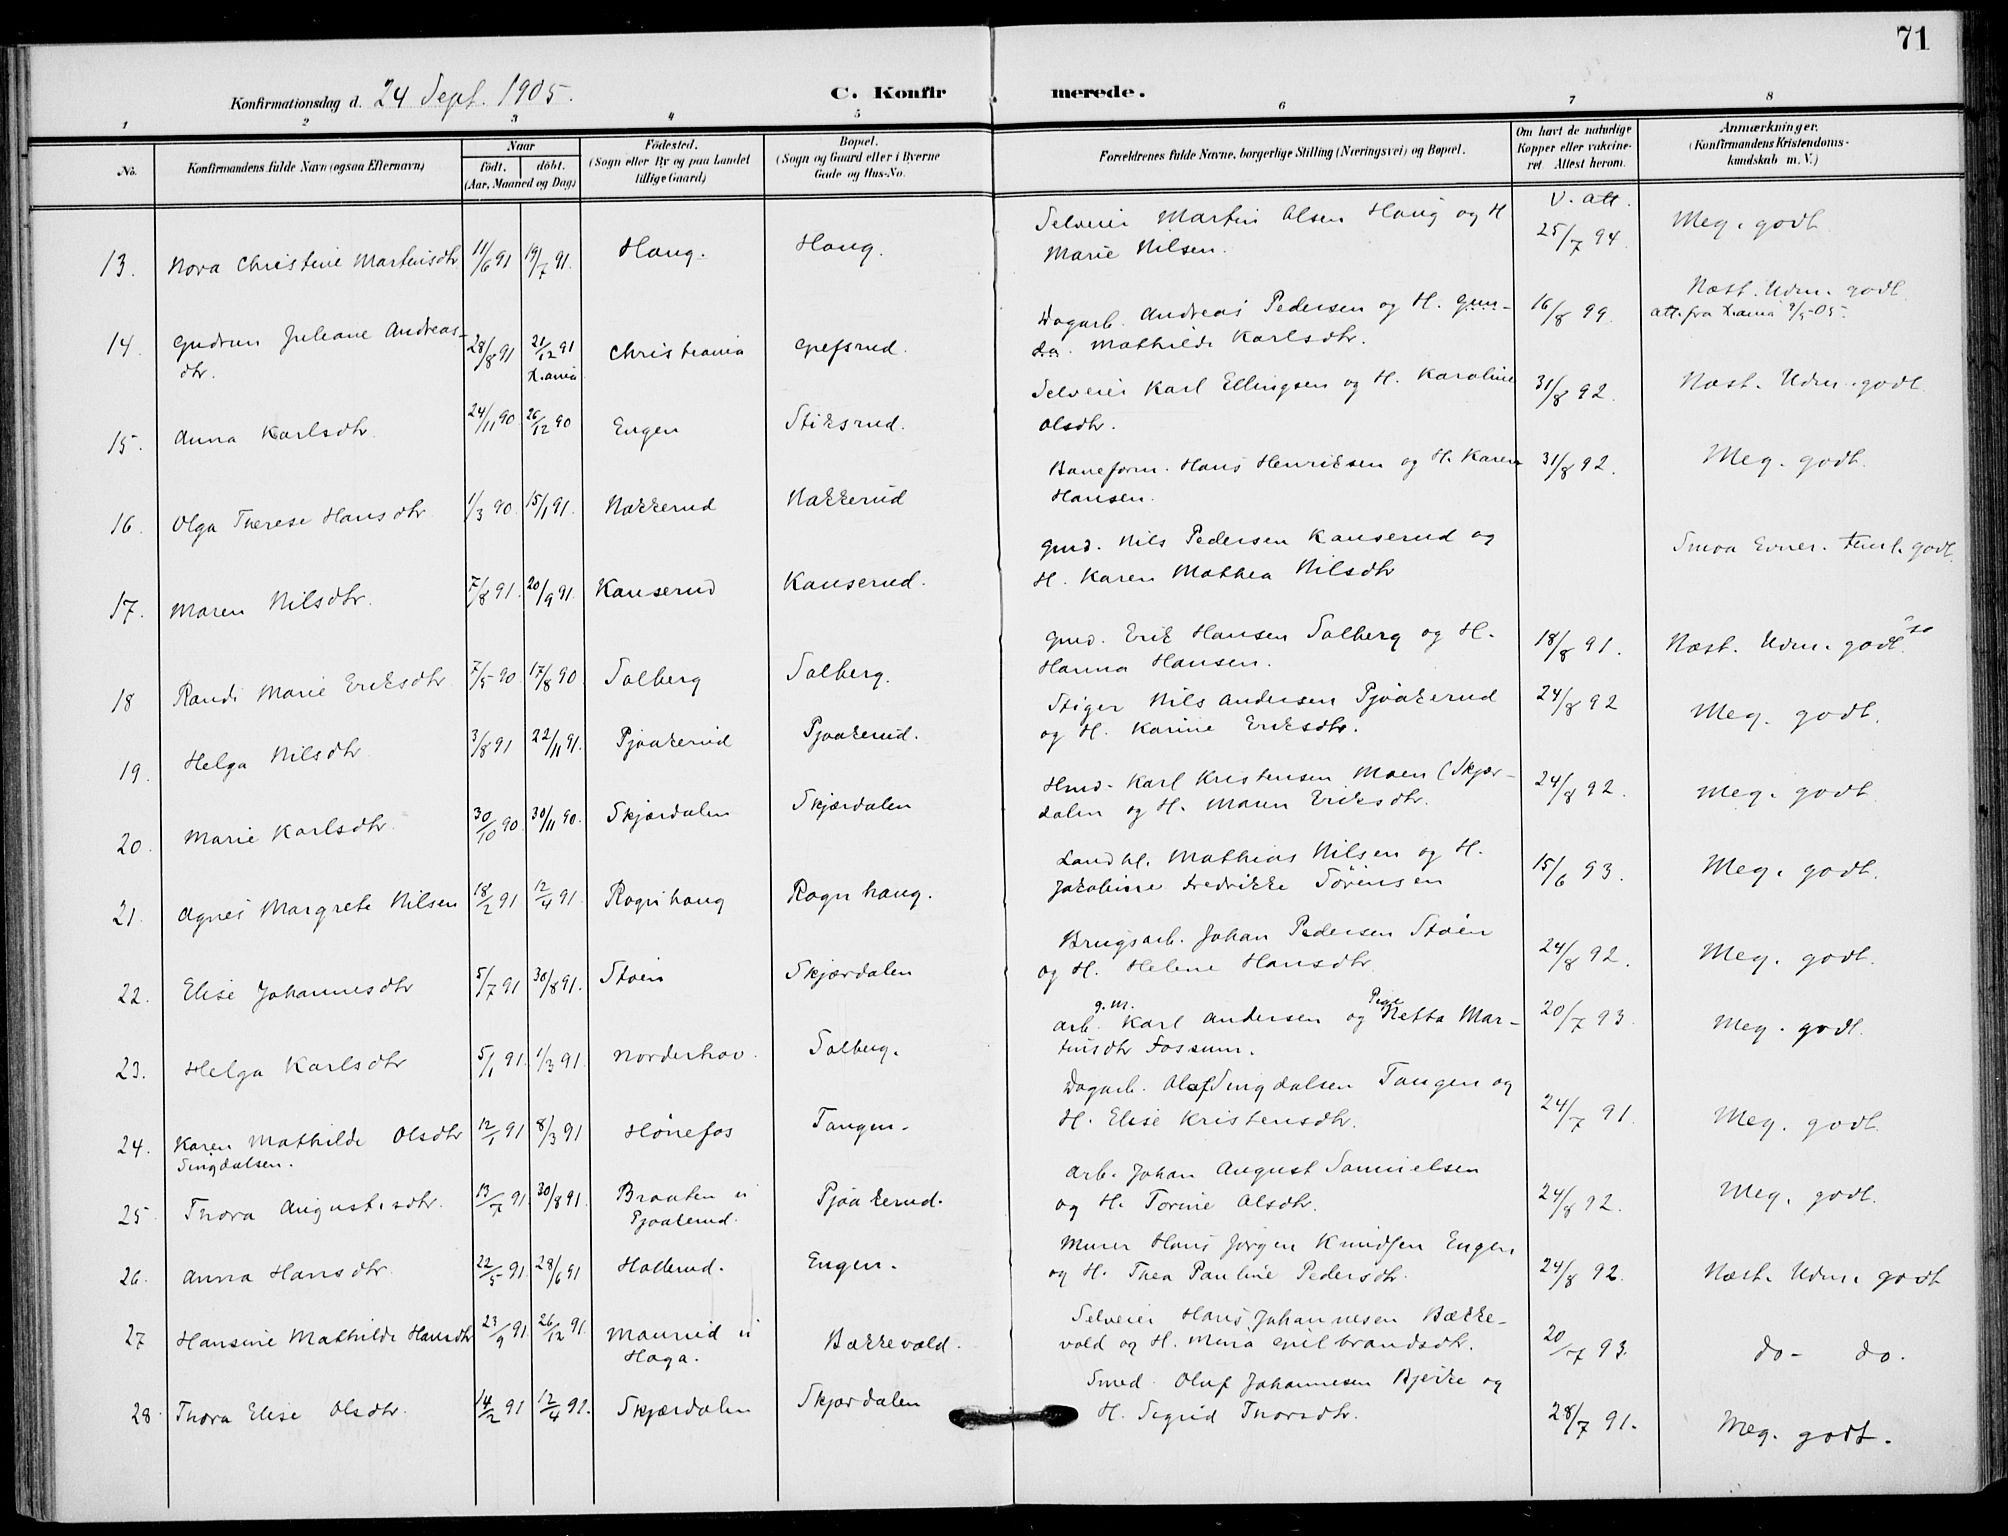 71
Konfirmationsdag d. 24 Sept. 1905.
C. Konfirmerede.
1 2 3 4 5 6 7 8
No.
Konfirmandens fulde Navn (ogsaa Efternavn)
Naar
födt. döbt.
(Aar, Maaned og Dag)
Födested.
(Sogn eller By og paa Landet
tillige Gaard)
Bopæl.
(Sogn og Gaard eller i Byerne
Gade og Hus-No.
Forældrenes fulde Navne, borgerlige Stilling (Næringsvei) og Bopæl.
Om havt de naturlige
Kopper eller vakcine-
ret. Attest herom.
Anmærkninger.
(Konfirmandens Kristendoms-
kundskab m. V.)
13. Nora Christine Martinsdtr 11/6 91 19/7 91. Haug. Haug.
Selveier Martin Olsen Haug og H
Marie Nilsen.
V. att.
25/7 94.
Meg. godt
14. Gudrun Juliane Andreas-
dtr.
28/8 91 21/12 91
X.ania
Christiania Gefsrud.
Dagarb. Andreas Pedersen og H. Gun-
da Mathilde Karlsdtr.
16/8 99
Næst. Udm. godt
att. fra Xania 9/5-05.
15. Anna Karlsdtr. 24/11 90 26/12 90 Engen Stiksrud.
Selveier Karl Ellingsen og H. Karoline
Olsdtr.
31/8 92.
Næst. Udm. godt
16. Olga Therese Hansdtr 1/3 90 15/1 91. Nakkerud Nakkerud
Baneform. Hans Henriksen og H. Karen
Hansen.
31/8 92.
Meg. godt.
17. Maren Nilsdtr. 7/8 91. 20/9 91. Kanserud Kanserud.
Gmd. Nils Pedersen Kanserud og
H. Karen Mathea Nilsdtr
Smaa Evner. Teml. godt
18 Randi Marie Eriksdtr 7/5 90 17/8 90 Solberg Solberg.
Gmd. Erik Hansen Solberg og H.
Hanna Hansen.
18/8 91.
Næst. Udm. godt
19. Helga Nilsdtr 3/8 91 22/11 91. Pjaakerud Pjaakerud.
Stiger Nils Andersen Pjaakerud
og H. Karine Eriksdtr.
24/8 92
Meg. godt.
20. Marie Karlsdtr 30/10 90 30/11 90. Skjærdalen Skjærdalen
Hmd. Karl Kristensen Moen (Skjær-
dalen og H. Maren Eriksdtr.
24/8 92.
Meg. godt
21. Agnes Margrete Nilsen 18/2 91 12/4 91. Rognhaug Rognhaug.
Landhl. Mathias Nilsen og H.
Jakobine Fredrikke Sörensen
15/6 93.
Meg. godt.
22. Elise Johannesdtr 5/7 91 30/8 91. Støen Skjærdalen
Brugsarb. Johan Pedersen Støen
og H. Helene Hansdtr
24/8 92.
Meg. godt.
23. Helga Karlsdtr 5/1 91. 1/3 91. Norderhov. Solberg.
g.m. Pige
Arb. Karl Andersen og Netta Mar-
tinsdtr Fossum.
20/7 93.
Meg. godt.
24. Karen Mathilde Olsdtr
Singdalsen.
12/1 91 8/3 91 Hønefos Tangen.
Dagarb. Olaf Singdalsen Tangen og
H. Elise Kristensdtr.
24/7 91.
Meg. godt.
25. Thora Augustsdtr. 13/7 91. 30/8 91. Braaten u
Pjaakerud.
Pjaakerud.
Arb. Johan August Samuelsen
og H. Torine Olsdtr.
24/8 92.
Meg. godt.
26. Anna Hansdtr. 22/5 91. 28/6 91 Hollerud. Engen.
Murer Hans Jørgen Knudsen Engen
og H. Thea Pauline Pedersdtr.
24/8 92.
Næst. Udm. godt
27 Hansine Mathilde Hansdtr 23/9 91. 26/12 91. Maurud u
Haga.
Bækkevold.
Selveier Hans Johannesen Bække-
vold og H. Mina Gulbrandsdtr.
20/7 93.
do- do.
28. Thora Elise Olsdtr. 14/2 91 12/4 92. Skjærdalen Skjærdalen
Smed Oluf Johannesen Bjerke og
H. Sigrid Thorsdtr.
28/7 91.
Meg. godt.